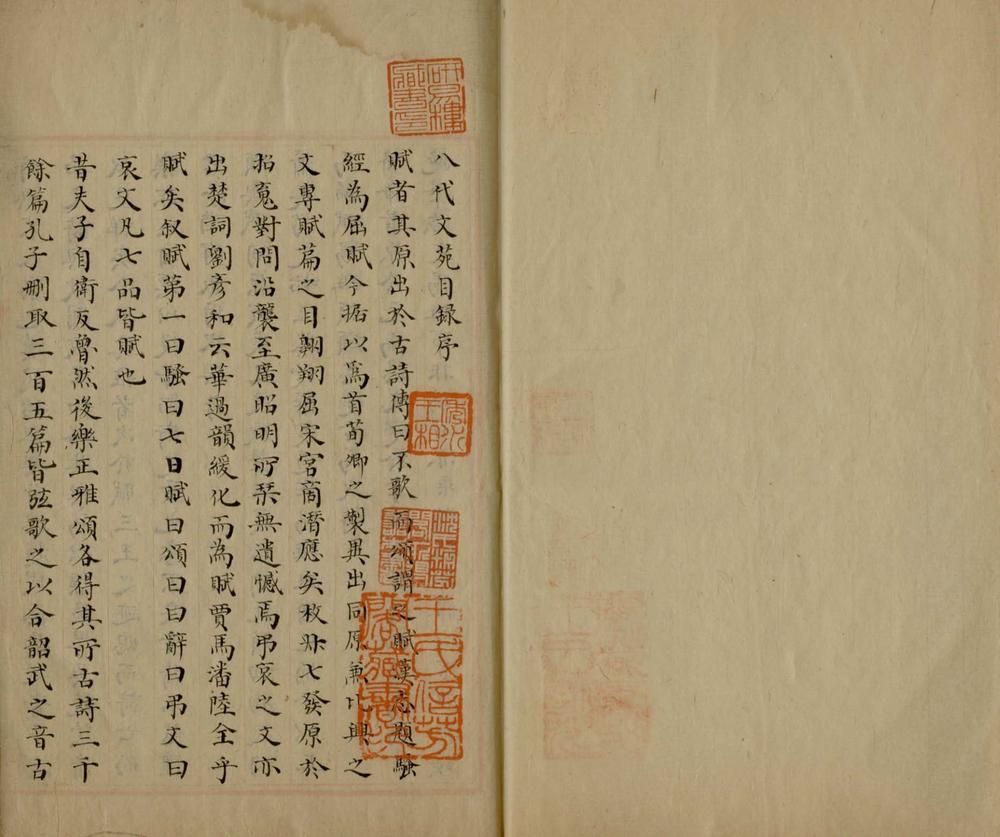 八代文苑目録序
賦者其原出於古詩傳曰不歌而頌謂之賦漢志題騷
經為屈賦今据以為首荀卿之製異出同原兼比興之
文專賦篇之目翺翔屈宋宮商潛應矣枚叔七發原於
招䰟對問沿襲至廣昭明所棊無遺憾焉弔哀之文亦
出楚詞劉彥和云華過韻緩化而為賦賈馬潘陸全乎
賦矣叙賦第一曰騷曰七曰賦曰頌曰曰辭曰弔文曰
哀文凡七品皆賦也
昔夫子自衛反魯然後樂正雅頌各得其所古詩三千
餘篇孔子刪取三百五篇皆弦歌之以合韶武之音古
研易樓藏書印